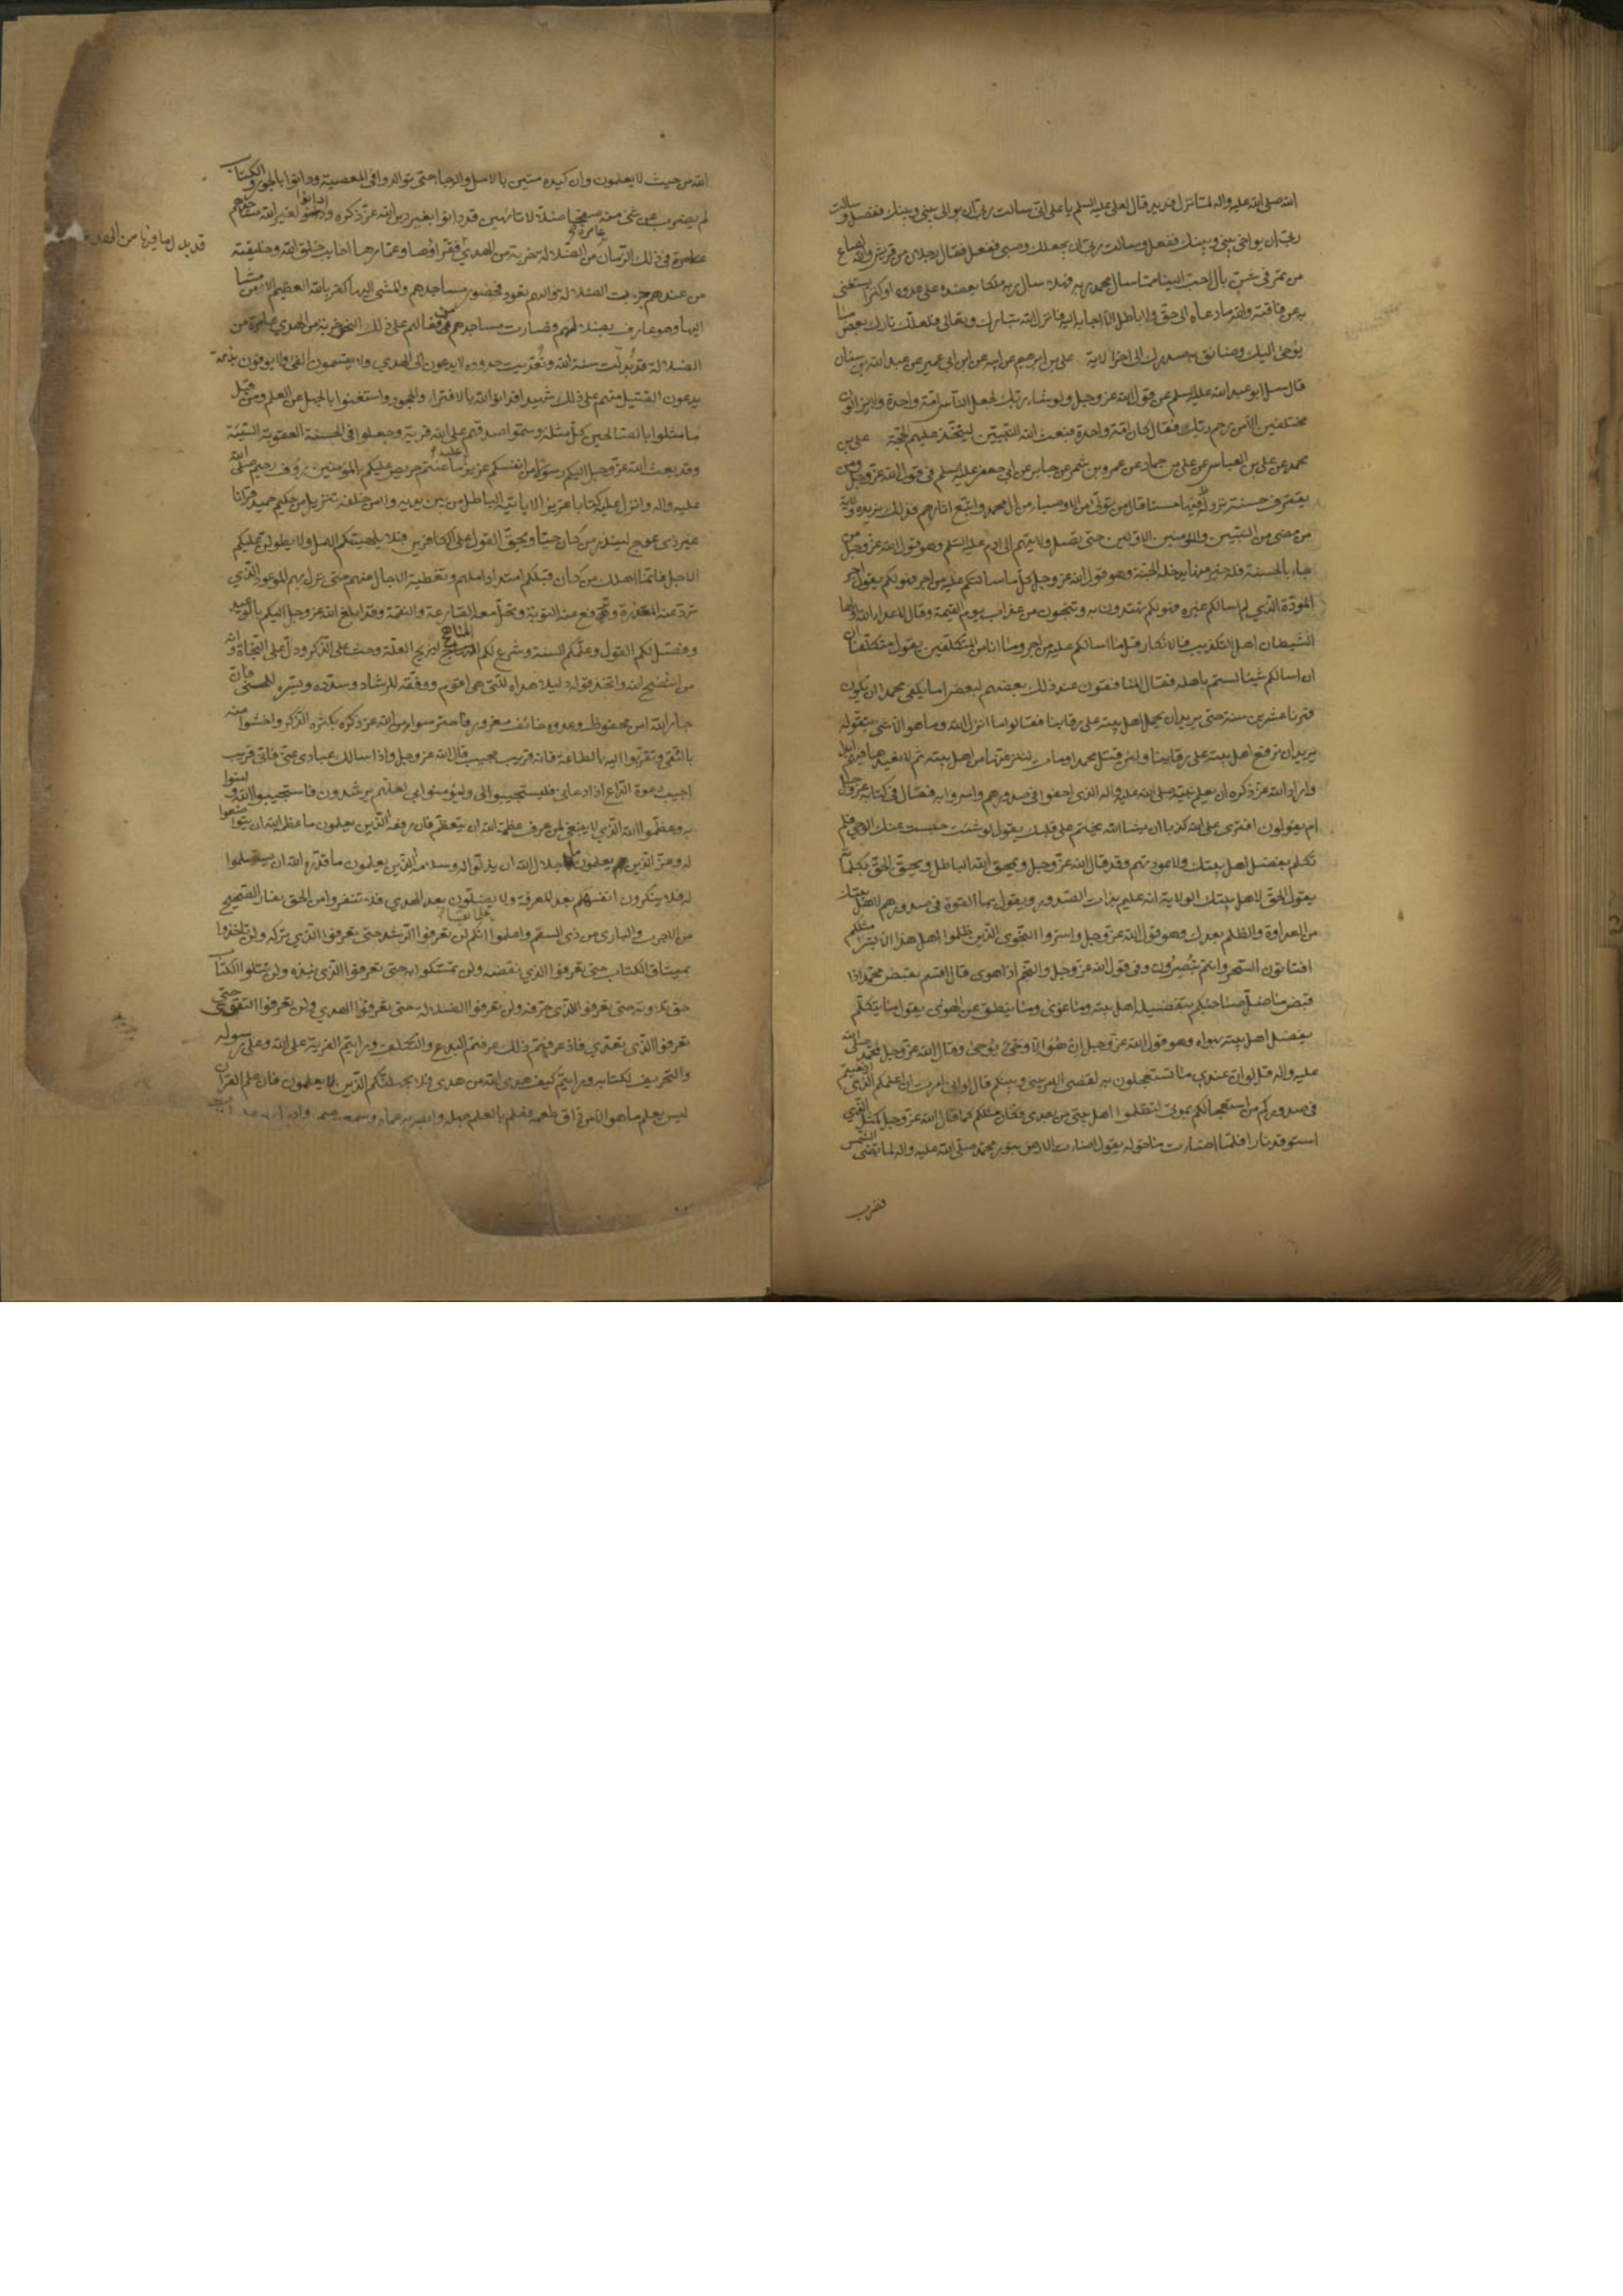 الله صلى الله عليه واله لما نزل قديد قال لعلي عليه السلم يا علي اني سالت ربي ان يوالي بيني وبينك ففعل وسالت
ربي ان يواخي بيني وبينك ففعل وسالت ربي ان يجعلك وصيي ففعل فقال رجلان من قريش والله لصاع
من تمر في شن بال احب الينا مما سال محمد ربه فهلا سال ربه ملكا يعضده على عدوه او كنزا يستغني
به عن فاقته والله ما دعاه الى حق ولا باطل الا اجابه اليه فانزل الله تبارك وتعالى فلعلك تارك بعض ما
يوحى اليك وضائق به صدرك الى اخر الاية علي بن ابرهيم عن ابيه عن ابن ابي عمير عن عبد الله بن سنان
قال سئل ابو عبد الله عليه السلم عن قول الله عز وجل ولو شاء ربك لجعل الناس امة واحدة ولا يزالون
مختلفين الا من رحم ربك فقال كانوا امة واحدة فبعث الله النبيين ليتخذ عليهم الحجة علي بن
محمد عن علي بن العباس عن علي بن حماد عن عمرو بن شمر عن جابر عن ابي جعفر عليه السلم في قول الله عز وجل ومن
يقترف حسنة نزد له فيها حسنا قال من تولى من الاوصياء من ال محمد واتبع اثارهم فذلك يزيده ولاية
من مضى من النبيين والمؤمنين الاولين حتى تصل ولايتهم الى ادم عليه السلم وهو قول الله عز وجل من
جاء بالحسنة فله خير منها يدخله الجنة وهو قول الله عز وجل قل ما سالتكم عليه من اجر فهو لكم يقول اجر
المودة الذي لم اسالكم غيره فهو لكم تهتدون به وتنجون من عذاب يوم القيمة وقال لاعداء الله اولياء
الشيطان اهل التكذيب والانكار قل ما اسالكم عليه من اجر وما انا من المتكلفين يقول متكلفا ان
ان اسالكم شيئا لستم باهله فقال المنافقون عند ذلك بعضهم لبعض اما يكفي محمدا ان يكون
قهرنا عشرين سنة حتى يريد ان يحمل اهل بيته على رقابنا فقالوا ما انزل الله وما هو الا شئ يتقوله
يريد ان يرفع اهل بيته على رقابنا ولئن قتل محمد او مات لننزعنها من اهل بيته ثم لا نعيدها فيهم ابدا
واراد الله عز ذكره ان يعلم نبيه صلى الله عليه واله الذي اخفوا في صدورهم واسروا به فقال في كتابه عز وجل
ام يقولون افترى على الله كذبا ان يشا الله يختم على قلبك يقول لو شئت حبست عنك الوحي فلم
تكلم بفضل اهل بيتك ولا بمودتهم وقد قال الله عز وجل ويمحو الله الباطل ويحق الحق بكلماته
يقول الحق لاهل بيتك الولاية انه عليم بذات الصدور ويقول بما القوه في صدورهم لاهل بيتك
من العداوة والظلم بعدك وهو قول الله عز وجل واسروا النجوى الذين ظلموا اهل هذا الا بشر مثلكم
افتاتون السحر وانتم تبصرون وفي قول الله عز وجل والنجم اذا هوى قال اقسم بقبض محمد اذا
قبض ما ضل صاحبكم بتفضيله اهل بيته وما غوى وما ينطق عن الهوى يقول ما يتكلم
بفضل اهل بيته بهواه وهو قول الله عز وجل ان هو الا وحي يوحى وقال الله عز وجل لمحمد صلى الله
عليه واله قل لو ان عندي ما تستعجلون به لقضي الامر بيني وبينكم قال لو اني امرت ان اعلمكم الذي اخفيتم
في صدوركم من استعجالكم بموتي لتظلموا اهل بيتي من بعدي فكان مثلكم كما قال الله عز وجل كمثل الذي
استوقد نارا فلما اضاءت ما حوله يقول اضاءت الارض بنور محمد صلى الله عليه واله كما تضئ الشمس
فضرب
الله من حيث لا يعلمون وان كيده متين بالامل والرجاء حتى توالدوا في المعصية ودانوا بالجور والكتاب
لم يضرب عن شئ منه صفحا ضلالا تائهين قد دانوا بغير دين الله عز ذكره وادانوا لغير الله مساجدهم
عامرة في ذلك الزمان من الضلالة خربة من الهدى فقراؤها وعمارها اخايب خلق الله وخليقته
قد بدل ما فيها من الهدى
من عندهم جرت الضلالة واليهم تعود فحضور مساجدهم والمشي اليها كفر بالله العظيم الا من مشا
اليها وهو عارف بضلالهم فصارت مساجدهم من فعالهم على ذلك النحو خربة من الهدى عامرة من
الضلالة قد بدلت سنة الله وتعديت حدوده لا يدعون الى الهدى ولا يقسمون الفئ ولا يوفون بذمة
يدعون القتيل منهم على ذلك شهيدا قد اتوا الله بالافتراء والجحود واستغنوا بالجهل عن العلم ومن قبل
ما مثلوا بالصالحين كل مثلة وسموا صدقهم على الله فرية وجعلوا في الحسنة العقوبة السيئة
وقد بعث الله عز وجل اليكم رسولا من انفسكم عزيز عليه ما عنتم حريص عليكم بالمؤمنين رؤف رحيم صلى الله
عليه واله وانزل عليه كتابا عزيزا لا ياتيه الباطل من بين يديه ولا من خلفه تنزيل من حكيم حميد قرانا
غير ذي عوج لينذر من كان حيا ويحق القول على الكافرين فلا يلهينكم الامل ولا يطولن عليكم
الاجل فانما اهلك من كان قبلكم امتداد املهم وتغطية الاجال عنهم حتى نزل بهم الموعود الذي
ترد عنه المعذرة وترفع عنه التوبة وتحل معه القارعة والنقمة وقد ابلغ الله عز وجل اليكم بالوعيد
وفصل لكم القول وعلمكم السنة وشرع لكم المناهج ليزيح العلة وحث على الذكر ودل على النجاة وانه
من انتصح لله واتخذ قوله دليلا هداه للتي هي اقوم ووفقه للرشاد وسدده ويسره للحسنى فان
جار الله امن محفوظ وعدوه خائف مغرور فاحترسوا من الله عز ذكره بكثرة الذكر واخشوا منه
بالتقى وتقربوا اليه بالطاعة فانه قريب مجيب قال الله عز وجل واذا سالك عبادي عني فاني قريب
اجيب دعوة الداع اذا دعاني فليستجيبوا لي وليؤمنوا بي لعلهم يرشدون فاستجيبوا لله وامنوا
به وعظموا الله الذي لا ينبغي لمن عرف عظمة الله ان يتعظم فان رفعة الذين يعلمون ما عظمة الله ان يتواضعوا
له وعز الذين يعلمون ما جلال الله ان يذلوا له وسلامة الذين يعلمون ما قدرة الله ان يستسلموا
له فلا ينكرون انفسهم بعد المعرفة ولا يضلون بعد الهدى فلا تنفروا من الحق نفار الصحيح
من الاجرب والبارئ من ذي السقم واعلموا علما يقينا انكم لن تعرفوا الرشد حتى تعرفوا الذي تركه ولن تاخذوا
بميثاق الكتاب حتى تعرفوا الذي نقضه ولن تمسكوا به حتى تعرفوا الذي نبذه ولن تتلوا الكتاب
حق تلاوته حتى تعرفوا الذي حرفه ولن تعرفوا الضلالة حتى تعرفوا الهدى ولن تعرفوا التقوى حتى
تعرفوا الذي تعدى فاذا عرفتم ذلك عرفتم البدع والتكلف ورايتم الفرية على الله وعلى رسوله
والتحريف لكتابه ورايتم كيف هدى الله من هدى فلا يجهلنكم الذين لا يعلمون فان علم القران
ليس يعلم ما هو الا من ذاق طعمه فعلم بالعلم جهله وابصر به عماه وسمع به صممه